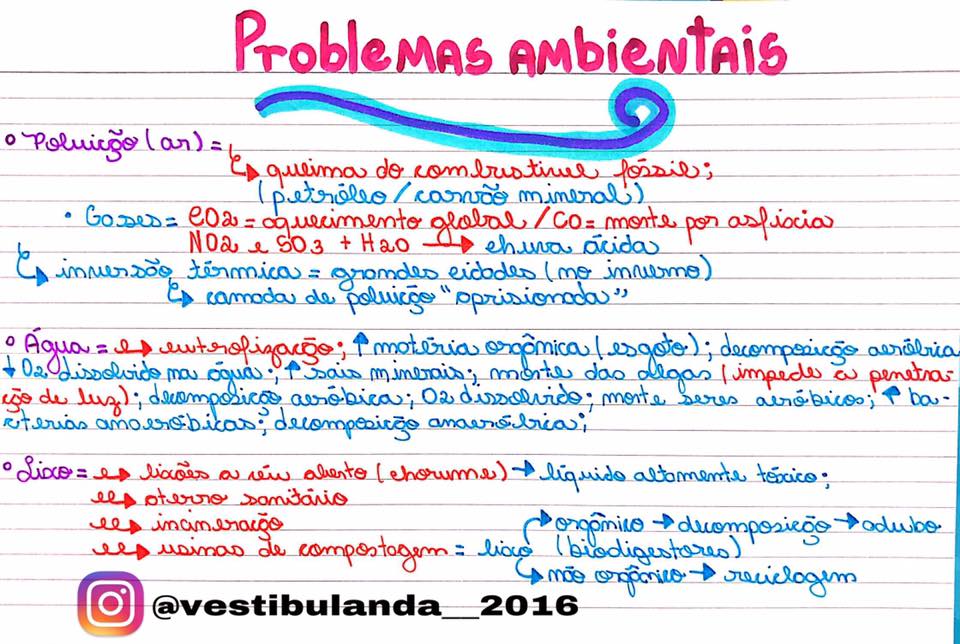 Problemas ambientais
• Poluição (ar) =
↳ queima do combustível fóssil;
(petróleo / carvão mineral)
• Gases = CO2 = aquecimento global / CO = morte por asfixia
NO2 e SO3 + H2O → chuva ácida
↳ inversão térmica = grandes cidades (no inverno)
↳ camada de poluição "aprisionada"
• Água = → eutrofização; ↑ matéria orgânica (esgoto); decomposição aeróbica
↓ O2 dissolvido na água; ↑ sais minerais; morte das algas (impede a penetra-
ção de luz); decomposição aeróbica; O2 dissolvido; morte seres aeróbicos; ↑ ba-
cterias anaeróbicas; decomposição anaeróbica;
• Lixo = → lixões a céu aberto (chorume) → líquido altamente tóxico;
→ aterro sanitário
→ incineração
↱ orgânico → decomposição → adubo
→ usinas de compostagem = lixo (biodigestores)
↳ não orgânico → reciclagem
@vestibulanda__2016